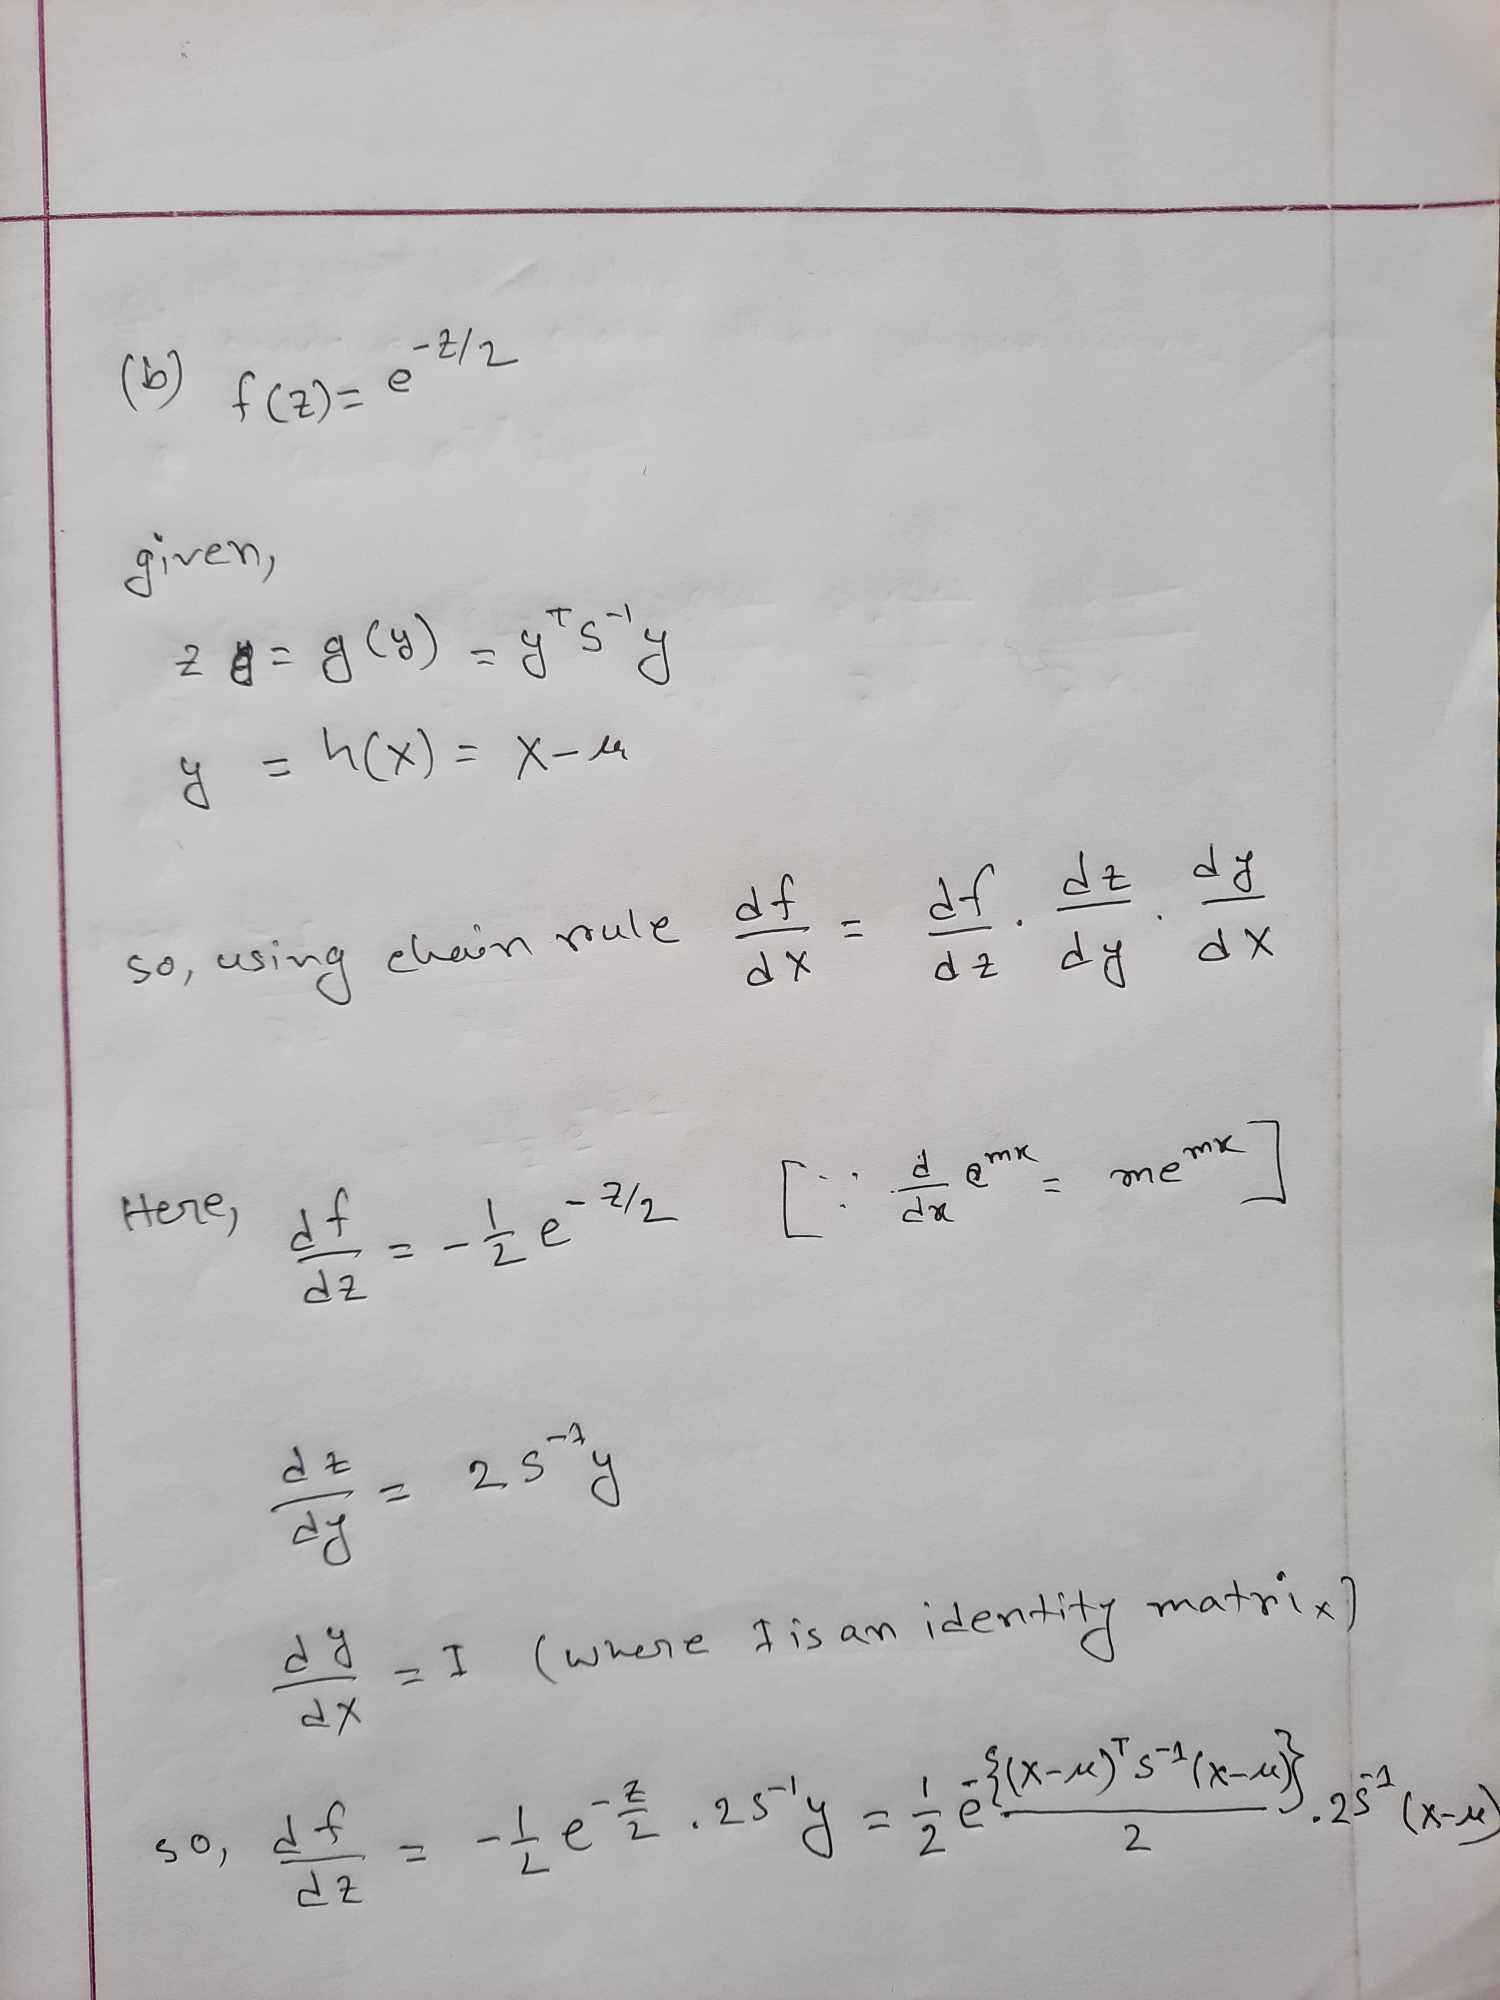 (b) f(z) = e^{-z/2}
given,
z = g(y) = y^T s^{-1} y
y = h(x) = x - μ
so, using chain rule df/dx = df/dz . dz/dy . dy/dx
Here, df/dz = -1/2 e^{-z/2} [∵ d/dx e^{mx} = me^{mx}]
dz/dy = 2 s^{-1} y
dy/dx = I (where I is an identity matrix)
so, df/dz = -1/2 e^{-z/2} . 2s^{-1} y = 1/2 e^{-{(x-μ)^T s^{-1} (x-μ)}/2} . 2s^{-1} (x-μ)